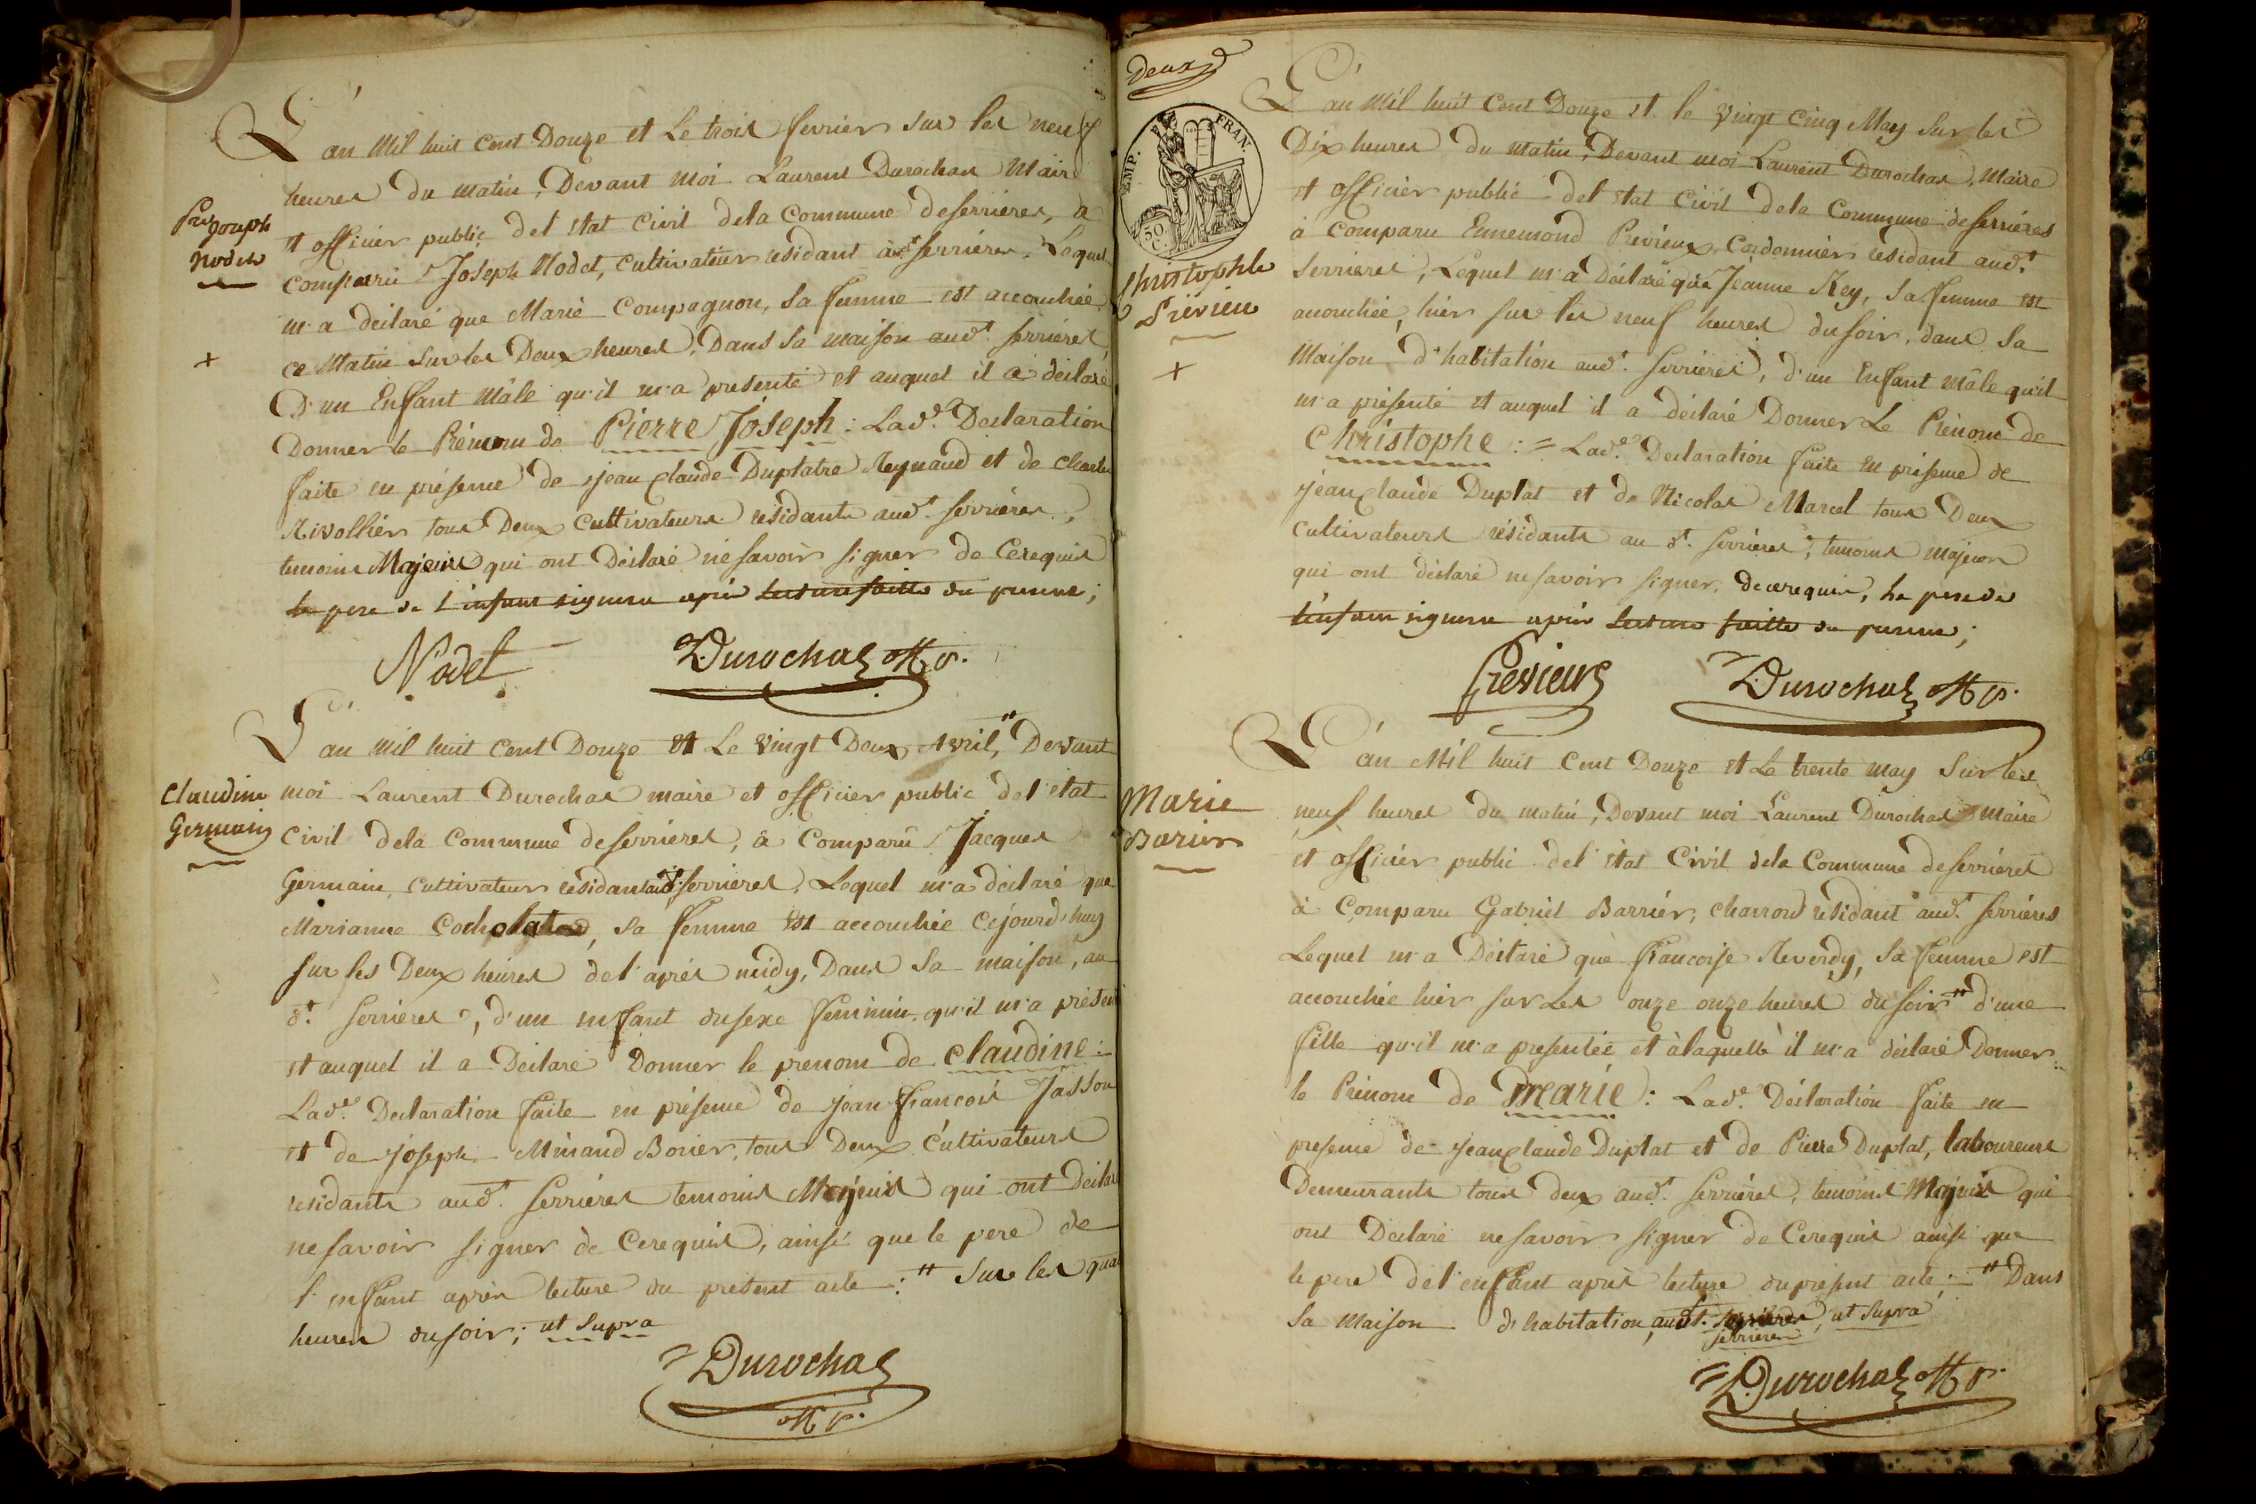 L'an Mil huit Cent Douze et Le trois fevrier sur les neuf
heures du matin, Devant moi Laurent Durochat Maire
et officier public del'etat Civil dela Commune deserrieres, a
comparu Joseph Nodet, cultivateur residant audt serrieres, Lequel
m'a déclaré que Marie Compagnon, Sa femme est accouchée
ce Matin sur les Deux heures, Dans Sa maison audt. serrieres,
D'un Enfant Mâle qu'il m'a presenté et auquel il a déclaré
Donner le Prénom de Pierre Joseph : Lade. Declaration
faite en présence de jean Claude Duplatre Reynaud et de Charles
Rivollier tous Deux Cultivateurs residants audt. serrieres,
temoins Majeurs qui ont Déclaré ne savoir signer de Cerequis
le pere de l'enfant signera apres lecture faitte du present;
Pre Joseph
Nodet
+
Nodet Durochat off. p.
L'an Mil huit Cent Douze et Le Vingt Deux Avril," Devant
moi Laurent Durochat maire et officier public del'etat
Civil dela Commune deserrieres, à Comparû Jacques
Germain, cultivateur residant audt serrieres, Lequel m'a déclaré que
Marianne, Sa femme est accouchée Cejourd'huy
sur les Deux heures del'aprés midy, Dans Sa maison, au
dt. serrieres, d'un enfant dusexe feminin qu'il m'a présenté
et auquel il a Déclaré Donner le prenom de Claudine :
Lade. Declaration faite en présence de jean françois Jasson
et de joseph Minand Borier, tous Deux Cultivateurs
residants audt. serrieres temoins Majeurs qui ont Déclaré
ne savoir signer de Cerequis, ainsi que le pere de
l'enfant aprés lecture du présent acte : " Sur les quatre
heures du soir; ut Supra
Claudine
Germain
Durochat
off. p.
Deux
EMP. FRAN.
50 C.
L'an Mil huit Cent Douze et le Vingt Cinq May Sur les
Dix heures du matin, Devant moi Laurent Durochat, Maire
et officier public del'etat Civil dela Commune deserrieres
à Comparu Ennemond Previeux, Cordonnier residant audt.
Serrieres, Lequel m'a Déclaré que Jeanne Rey, Sa femme est
accouchée, hier sur les neuf heures du soir, dans Sa
Maison d'habitation audt. Serrieres, d'un Enfant Mâle qu'il
m'a présenté et auquel il a déclaré Donner Le Prénom de
Christophe : = Lade. Declaration faite en présence de
jean Claude Duplat et de Nicolas Marcel tous Deux
Cultivateurs résidants au dt. Serrieres, temoins Majeurs
qui ont déclaré ne savoir signer, decerequis, Le pere de
l'enfant signera apres lecture faitte du present;
Christophle
Prévieu
+
Previeux Durochat off p.
L'an Mil huit Cent Douze et Le trente may Sur les
neuf heures du matin, Devant moi Laurent Durochat Maire
et officier public del'état Civil dela Commune deserrieres
à Comparu Gabriel Barrier, charron residant audt. Serrieres
Lequel m'a Déclaré que françoise Reverdy, Sa femme est
accouchée hier sur Les onze onze heures du soir " d'une
fille qu'il m'a presentée et àlaquelle il m'a déclaré Donner
le Prénom de Marie : Lade. Déclaration faite en
presence de jean Claude Duplat et de Pierre Duplat, laboureurs
Demeurants tous deux audt. Serrieres, temoins Majeurs qui
ont Déclaré ne savoir signer de Cerequis ainsi que
le pere del'enfant aprés lecture du présent acte; " Dans
Sa Maison d'habitation, audt. serrieres, ut Supra
serrieres
Marie
Barier
Durochat off p.